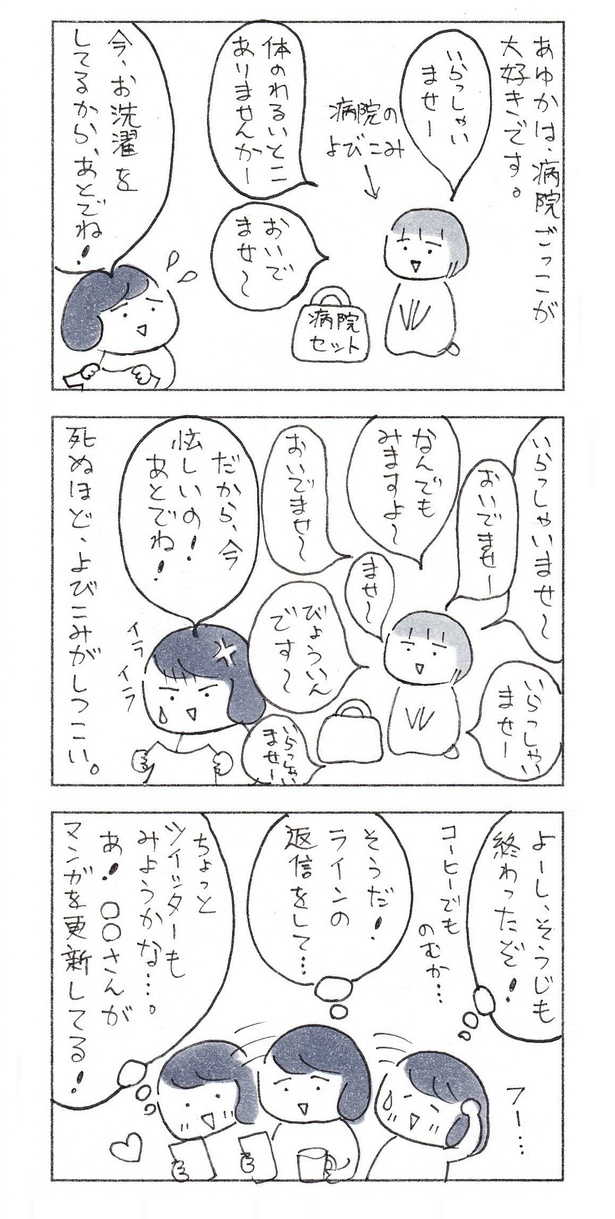 あゆかは、病院ごっこが
大好きです。
いらっしゃい
ませー
病院の
よびこみ
体のわるいとこ
ありませんかー
おいで
ませ〜
病院
セット
今、お洗濯を
してるから、あとでね!
いらっしゃいませ〜
おいでませー
なんでも
みますよ〜
ませ〜
おいでませ〜
びょういん
です〜
いらっしゃい
ませー
いらっしゃい
ませー
だから、今
忙しいの!
あとでね!
イライラ
死ぬほど、よびこみがしつこい。
よーし、そうじも
終わったぞ!
コーヒーでも
のむか…
フー…
そうだ!
ラインの
返信をして…
ちょっと
ツイッターも
みようかな…。
あ!○○さんが
マンガを更新してる!